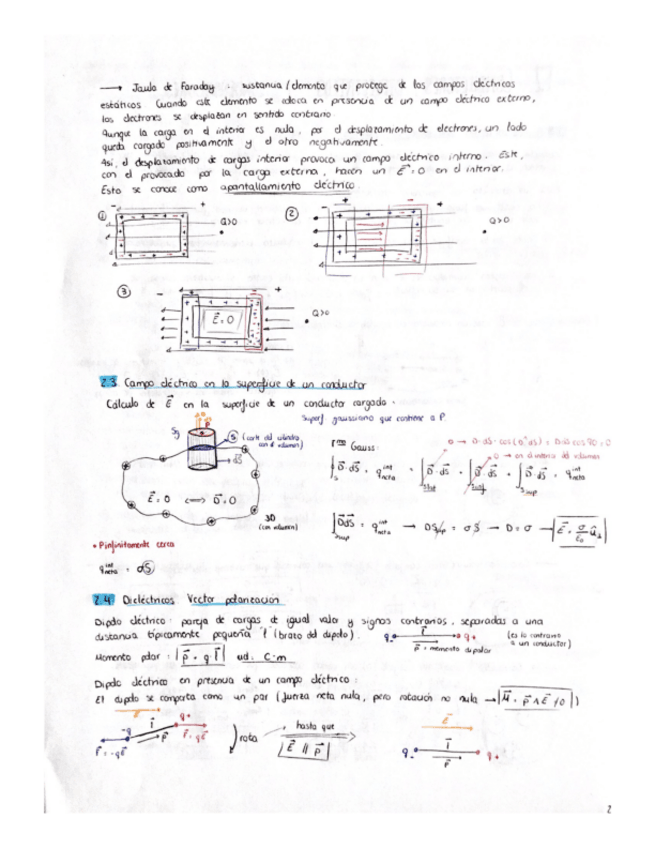 → Jaula de Faraday : sustancia / elemento que protege de los campos eléctricos
estáticos. Cuando este elemento se coloca en presencia de un campo eléctrico externo,
los electrones se desplazan en sentido contrario.
Aunque la carga en el interior es nula, por el desplazamiento de electrones, un lado
queda cargado positivamente y el otro negativamente.
Así, el desplazamiento de cargas interior provoca un campo eléctrico interno. Este,
con el provocado por la carga externa, hacen un E⃗=0 en el interior.
Esto se conoce como apantallamiento eléctrico.
① - + Q>0
② - + Q>0
③ - + Q>0
E⃗=0
2.3 Campo eléctrico en la superficie de un conductor
Cálculo de E⃗ en la superficie de un conductor cargado.
Superf gaussiana que contiene a P
(corte del cilindro
con el volumen)
Gauss:
en el interior del volumen
E⃗=0 ⟺ D⃗=0
3D
(con volumen)
• P infinitamente cerca
2.4 Dieléctricos. Vector polarización
Dipolo eléctrico: pareja de cargas de igual valor y signos contrarios, separadas a una
distancia típicamente pequeña "l" (brazo del dipolo).
q- q+
p⃗ = momento dipolar
(es lo contrario
a un conductor)
Momento polar: |p⃗ = q·l⃗| ud. C·m
Dipolo eléctrico en presencia de un campo eléctrico:
El dipolo se comporta como un par (fuerza neta nula, pero rotación no nula → M⃗ = p⃗ ∧ E⃗ ≠ 0)
E⃗
-q l⃗ q+
F⃗=-qE⃗ p⃗ F⃗=qE⃗
rota
hasta que
E⃗ ∥ p⃗
E⃗
q- l⃗ q+
p⃗
2